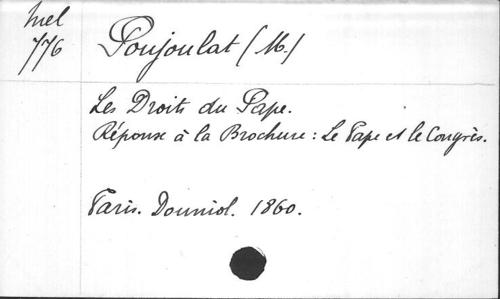 Mel
776
Poujoulat (M.)
Les Droits du Pape.
Réponse à la Brochure : Le Pape et le Congrès.
Paris. Douniol. 1860.